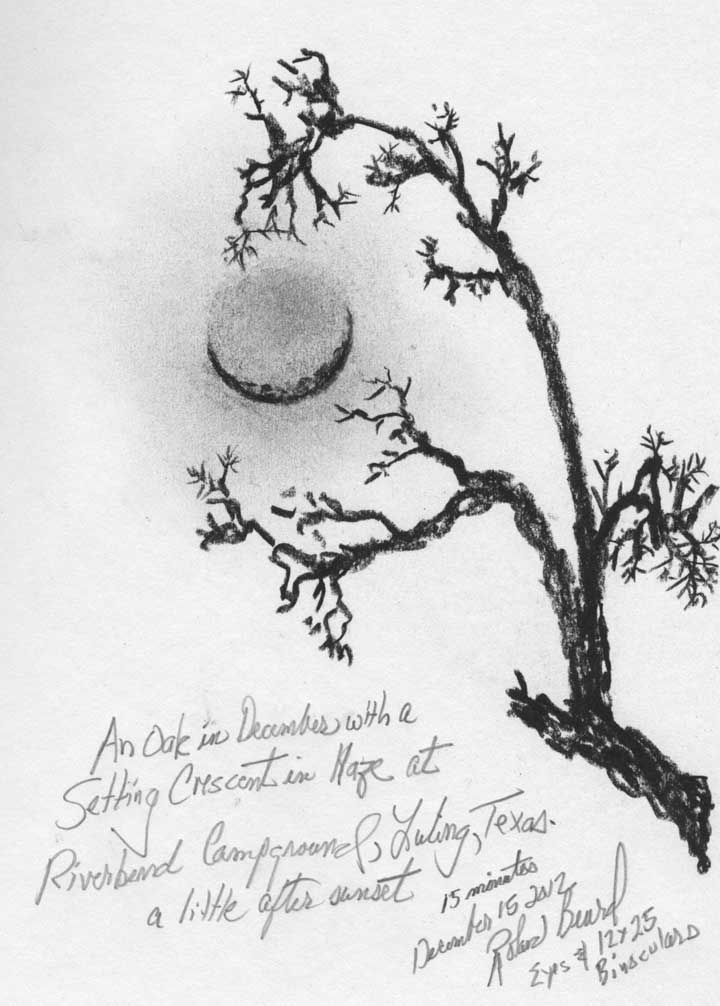 An Oak in December with a
Setting Crescent in Haze at
Riverbend Campground, Luling, Texas.
a little after sunset
15 minutes
December 15 2012
Roland
Eyes & 12x25
Binoculars